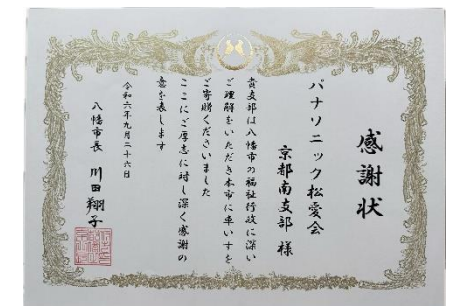 感謝状
パナソニック松愛会
京都南支部 様
貴支部は八幡市の福祉行政に深い
ご理解をいただき本市に車いすを
ご寄贈くださいました
ここにご厚志に対し深く感謝の
意を表します
令和六年九月二十六日
八幡市長 川田翔子